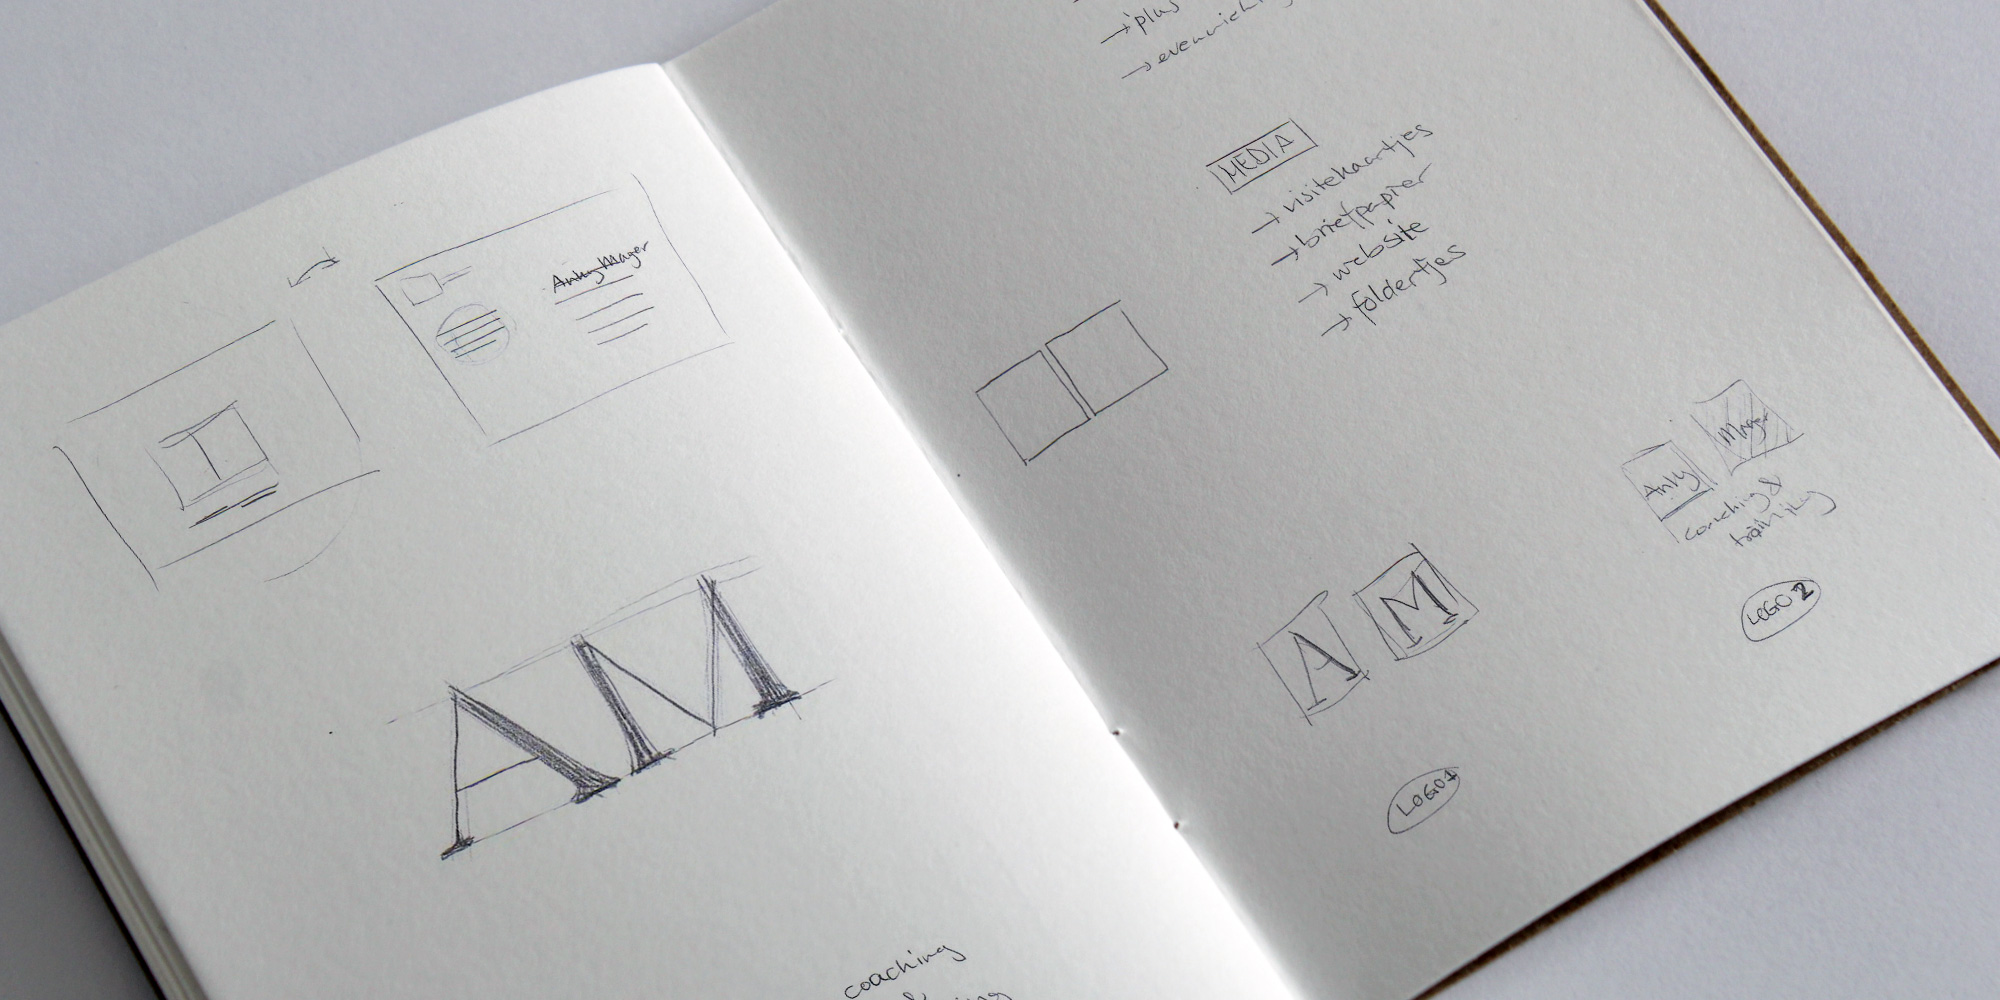 Anky Mager
AM
coaching
&
→ plus
MEDIA
→ visitekaartjes
→ briefpapier
→ website
→ foldertjes
Anky Mager
coaching &
training
LOGO 2
A M
LOGO 1